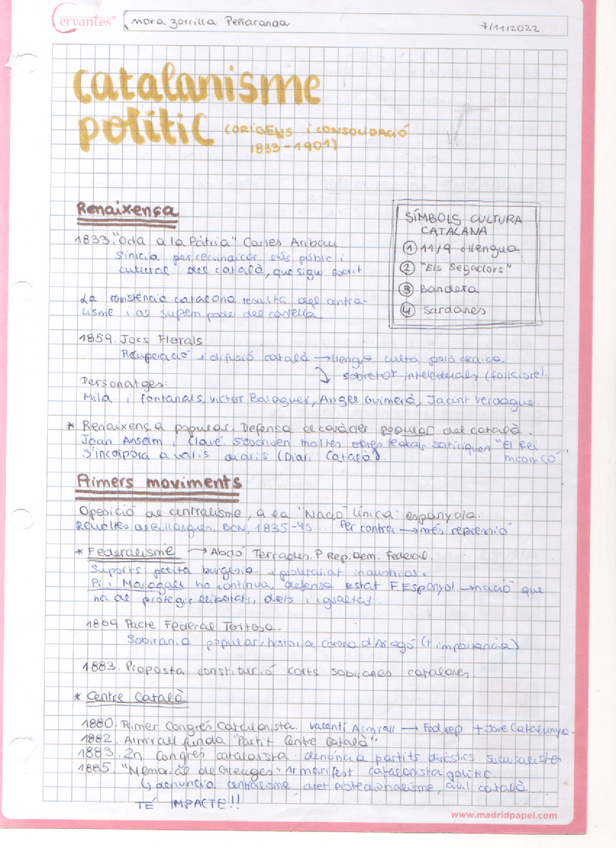 Cervantes® Mora Zorrilla Peñaranda 7/11/2022
catalanisme
polític (ORÍGENS i CONSOLIDACIÓ
1833-1901)
Renaixença
SÍMBOLS CULTURA
CATALANA
1 11/9 llengua
2 "Els Segadors"
3 Bandera
4 Sardanes
1833. "Oda a la Pàtria" Carles Aribau
S'inicia per reivindicar públic i
cultural del català, que sigui escrit
La consciència catalana resulta del centra-
lisme i del castellà
1859. Jocs Florals
Recuperació i difusió català → llengua culta
↳ sobretot intel·lectuals (folklore).
Personatges:
Milà i Fontanals, Víctor Balaguer, Àngel Guimerà, Jacint Verdaguer
* Renaixença popular. Defensa de caràcter popular del català.
Joan Anselm i Clavé. S'escriven moltes obres teatrals "El Rei
S'incorpora a diaris (Diari Català)
Primers moviments
Oposició al centralisme, a la "Nació Única" espanyola.
Bullangues. BCN, 1835-43 Per contra → més repressió
* Federalisme → Abdó Terrades. P Rep. Dem. Federal.
Suports petita burgesia i proletariat industrial.
Pi i Margall no continua, defensa estat F. Espanyol → nació que
ha de protegir llibertats, drets i igualtat
1869. Pacte Federal Tortosa.
Sobirania popular, història corona d'Aragó (+ importància)
1883. Proposta constitució corts sobiranes catalanes.
* Centre Català
1880. Primer Congrés Catalanista. Valentí Almirall → Fed rep + Jove Catalunya.
1882. Almirall funda "Partit Centre Català"
1883. 2n congrés catalanista denúncia partits dinàstics sucursalistes
1885. "Memorial de Greuges" 1r manifest catalanista polític
↳ denuncia centralisme, dret proteccionalisme, civil català
TÉ IMPACTE!!
www.madridpapel.com